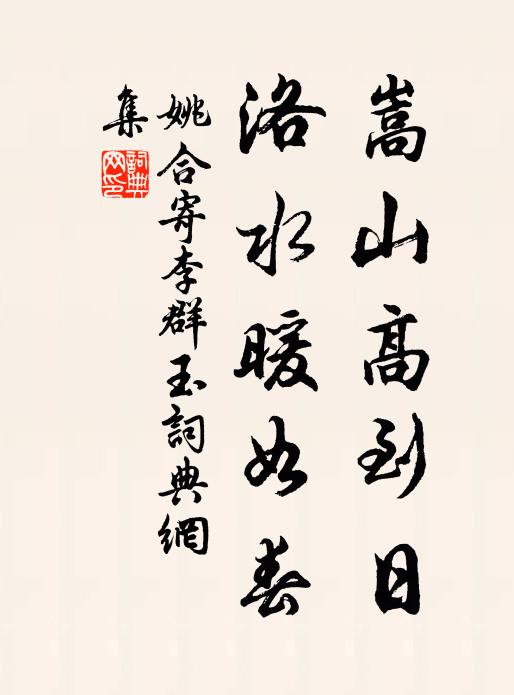 嵩山高到日
洛水暖如春
姚合寄李群玉詞典網
集
詞典
网印